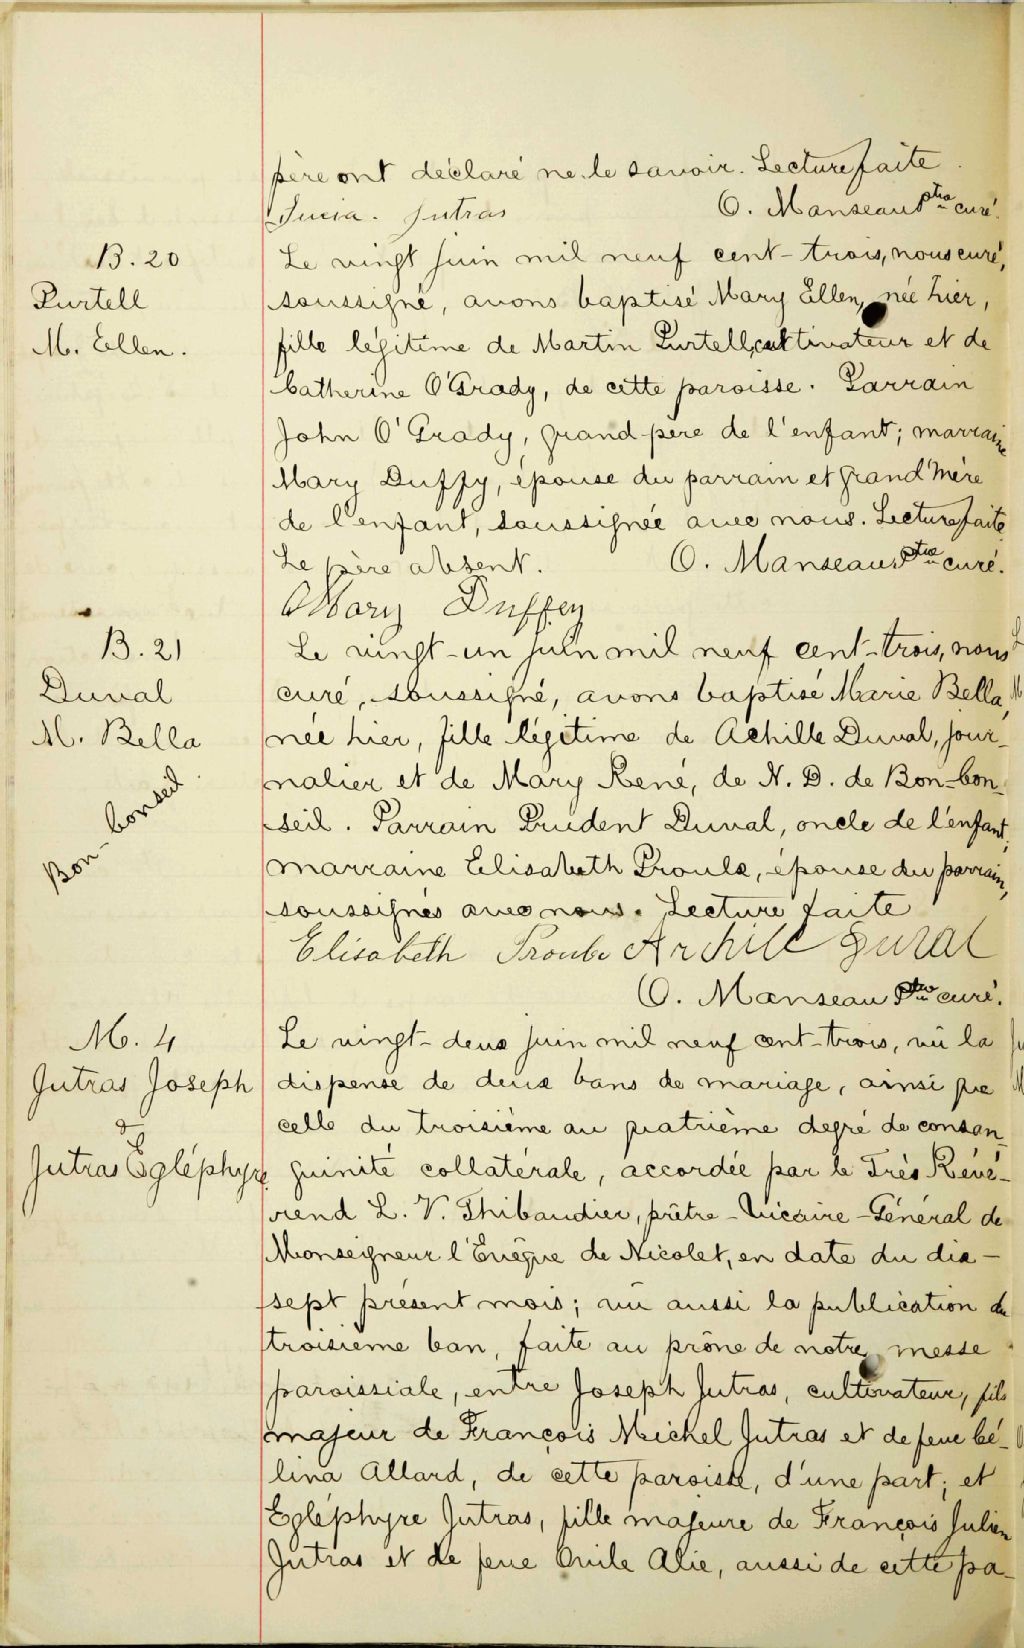 père ont déclaré ne le savoir. Lecture faite.
Lucia. Jutras O. Manseau Ptre curé.
B. 20
Purtell
M. Ellen.
Le vingt juin mil neuf cent-trois, nous curé,
soussigné, avons baptisé Mary Ellen, née hier,
fille légitime de Martin Purtell, cultivateur et de
Catherine O'Grady, de cette paroisse. Parrain
John O'Grady, grand-père de l'enfant; marraine
Mary Duffy, épouse du parrain et grand'mère
de l'enfant, soussignée avec nous. Lecture faite
Le père absent. O. Manseau Ptre curé.
Mary Duffey
B. 21
Duval
M. Bella
Bon-Conseil.
Le vingt-un juin mil neuf cent-trois, nous
curé, soussigné, avons baptisé Marie Bella,
née hier, fille légitime de Achille Duval, jour-
nalier et de Mary René, de N. D. de Bon-Con-
seil. Parrain Prudent Duval, oncle de l'enfant;
marraine Elisabeth Proulx, épouse du parrain,
soussignés avec nous. Lecture faite
Elisabeth Proulx Archille Duval
O. Manseau Ptre curé.
M. 4
Jutras Joseph
&
Jutras Egléphyre
Le vingt-deux juin mil neuf cent-trois, vu la
dispense de deux bans de mariage, ainsi que
celle du troisième au quatrième degré de consan-
guinité collatérale, accordée par le Très Révé-
rend L. V. Thibaudier, prêtre-Vicaire-Général de
Monseigneur l'Evêque de Nicolet, en date du dix-
sept présent mois; vu aussi la publication du
troisième ban, faite au prône de notre messe
paroissiale, entre Joseph Jutras, cultivateur, fils
majeur de François Michel Jutras et de feue Cé-
lina Allard, de cette paroisse, d'une part; et
Egléphyre Jutras, fille majeure de François Julien
Jutras et de feue Onile Alie, aussi de cette pa-